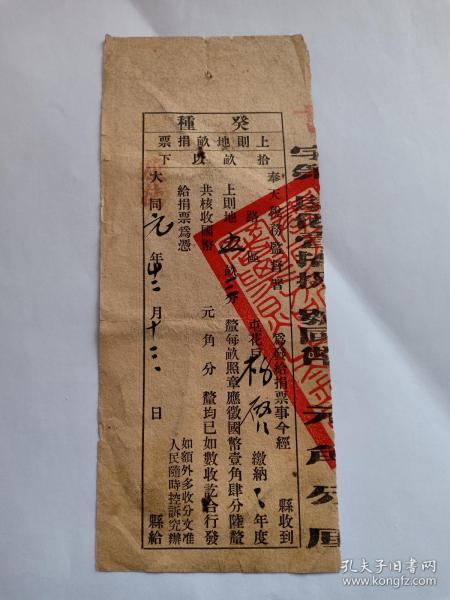 癸種
上則地畝捐票
拾畝以下
奉天稅務監督署 為發給捐票事今經 縣收到
路 區 屯花戶 楊 繳納 年度
上則地 五 畝 二分 釐每畝照章應徵國幣壹角肆分陸釐
共核收國幣 元角分釐均已如數收訖合行發
給捐票為憑
如額外多收分文准
人民隨時控訴究辦
大同元年十二月十三日 縣給
元角分厘
孔夫子旧书网
book.kongfz.com